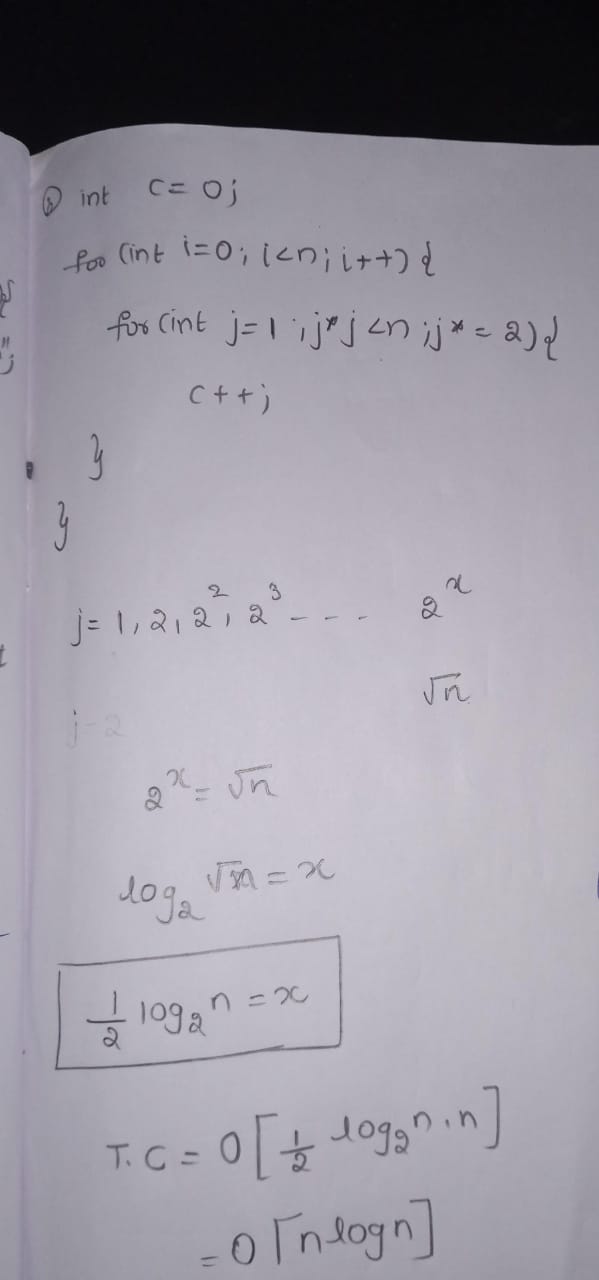 int c= 0;
for (int i=0; i<n; i++) {
for (int j=1; j*j <n; j*=2){
c++;
}
}
j= 1, 2, 2², 2³ - - - 2ˣ
√n
j-2
2ˣ = √n
log₂ √n = x
1/2 log₂ n = x
T.C = O[1/2 log₂n.n]
= O[nlogn]